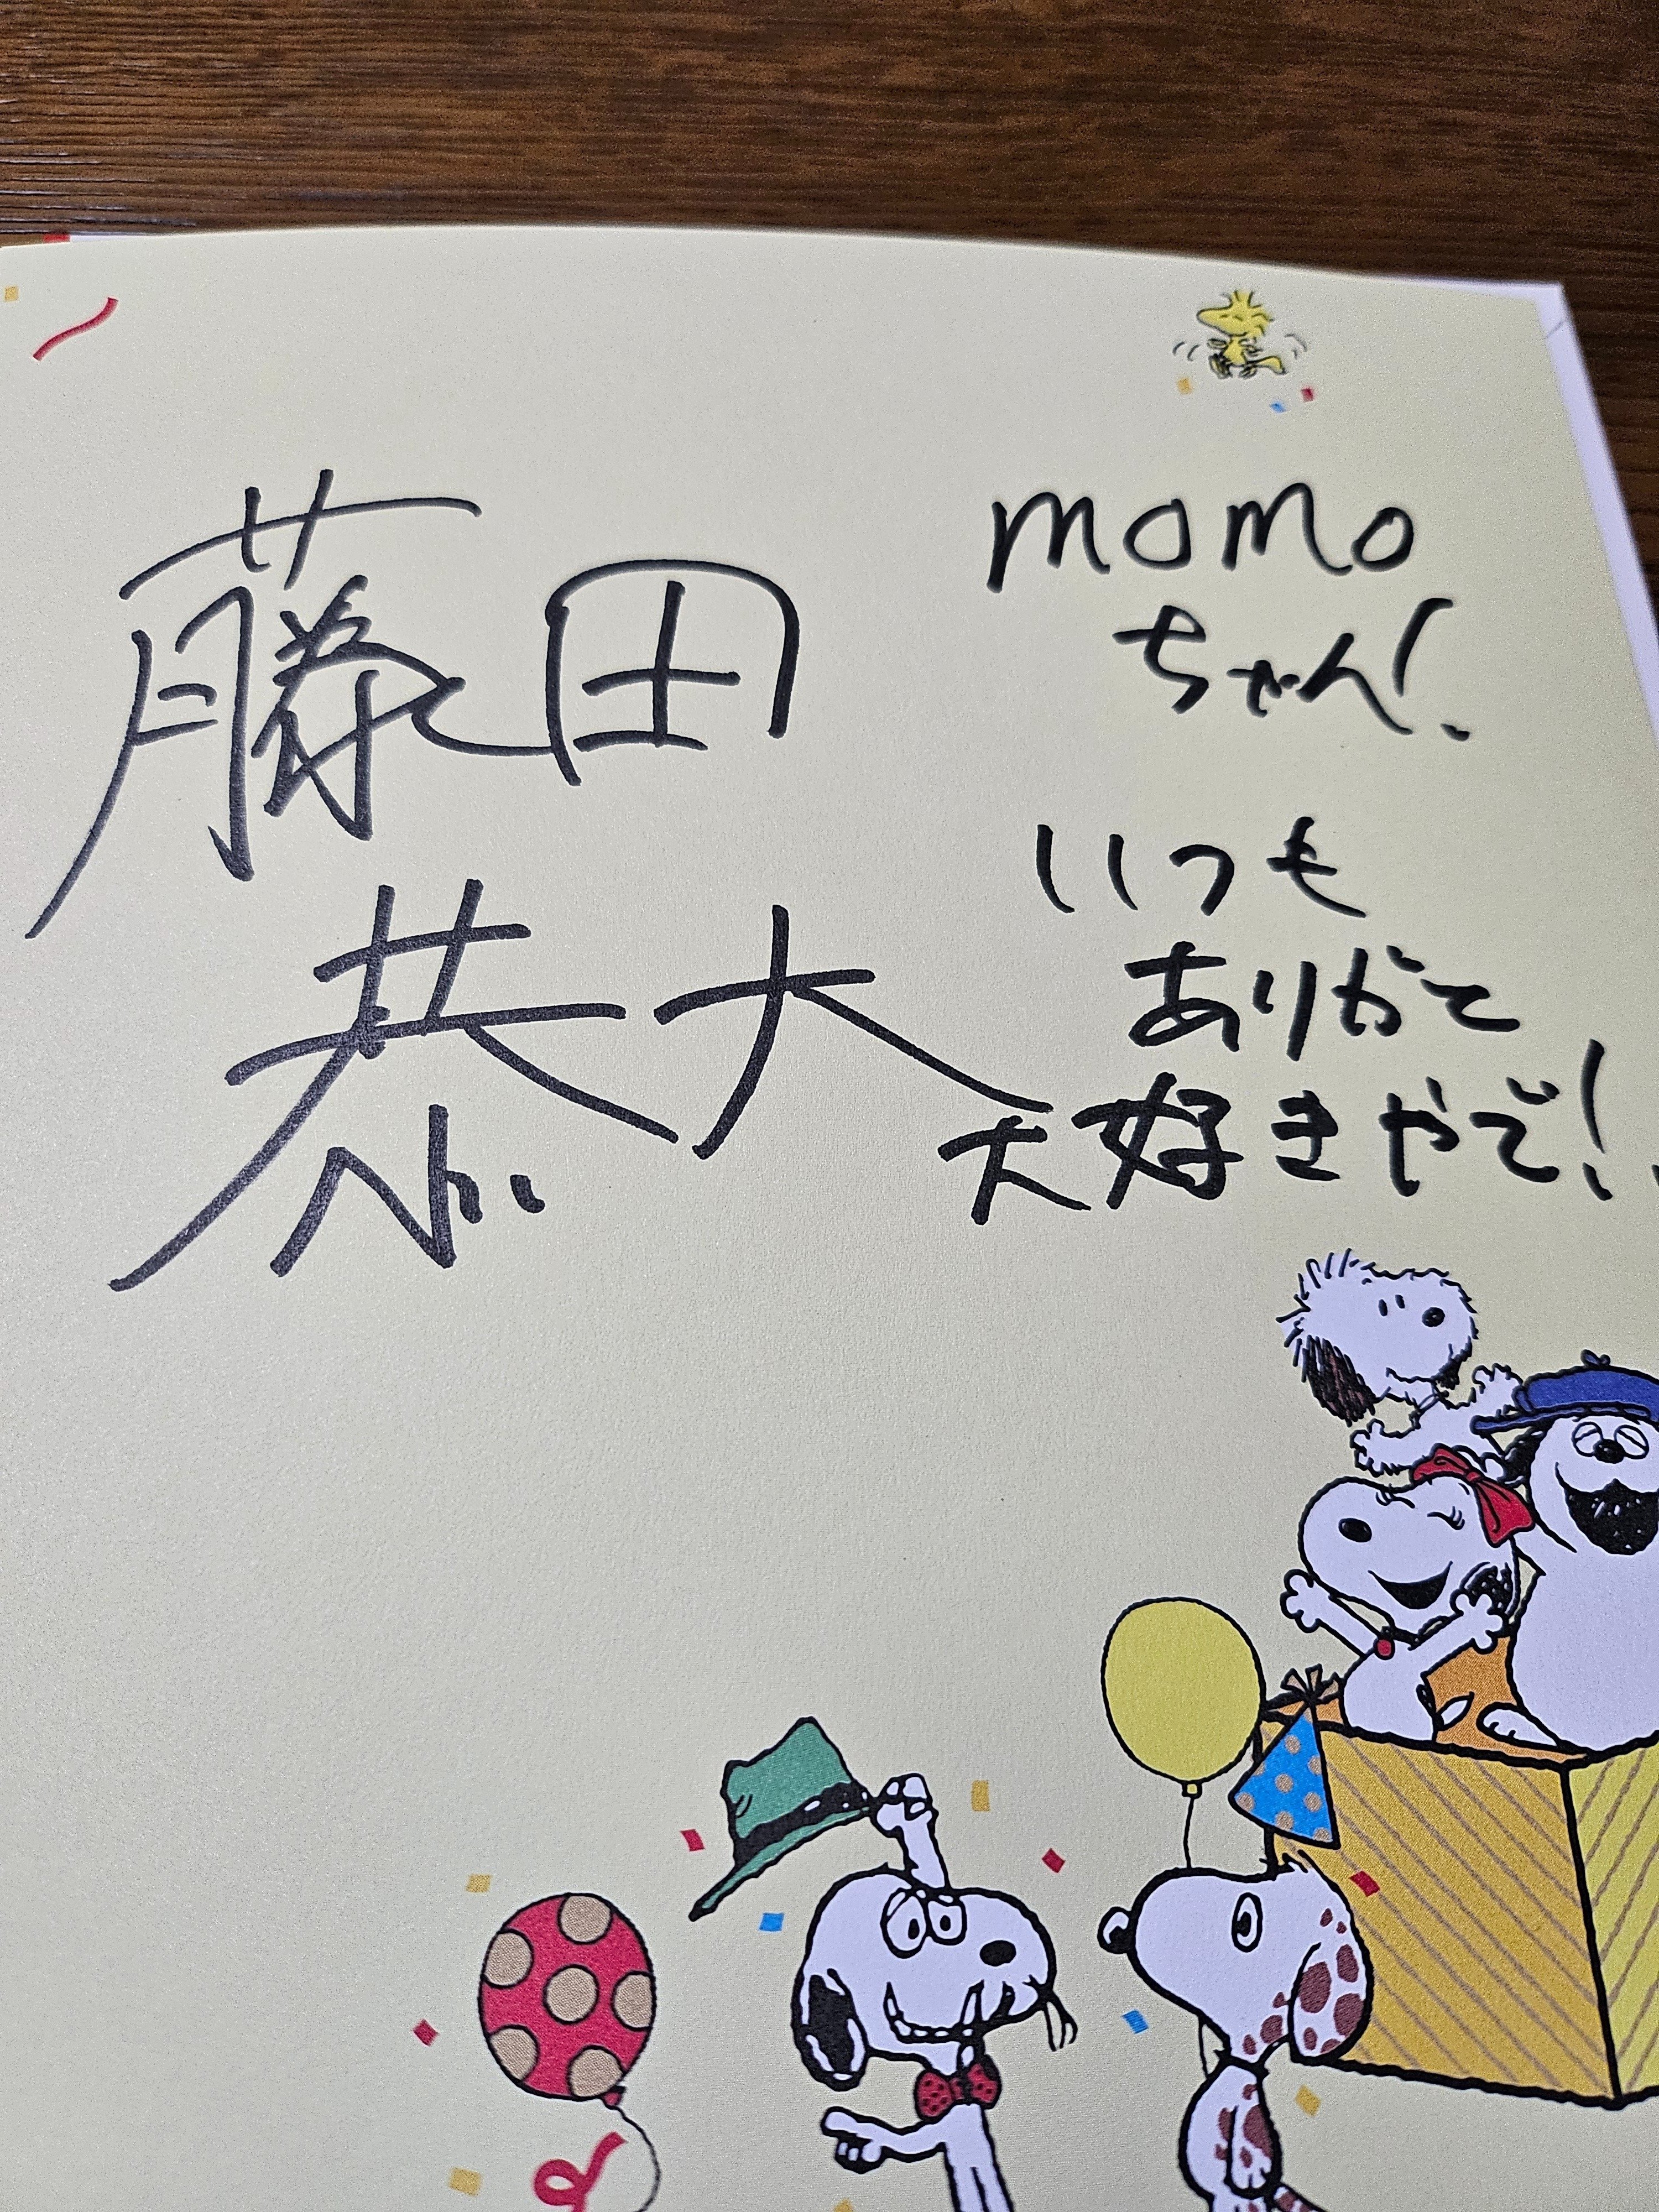 momo
ちゃん!
いつも
ありがと
大好きやで!
藤田
恭大